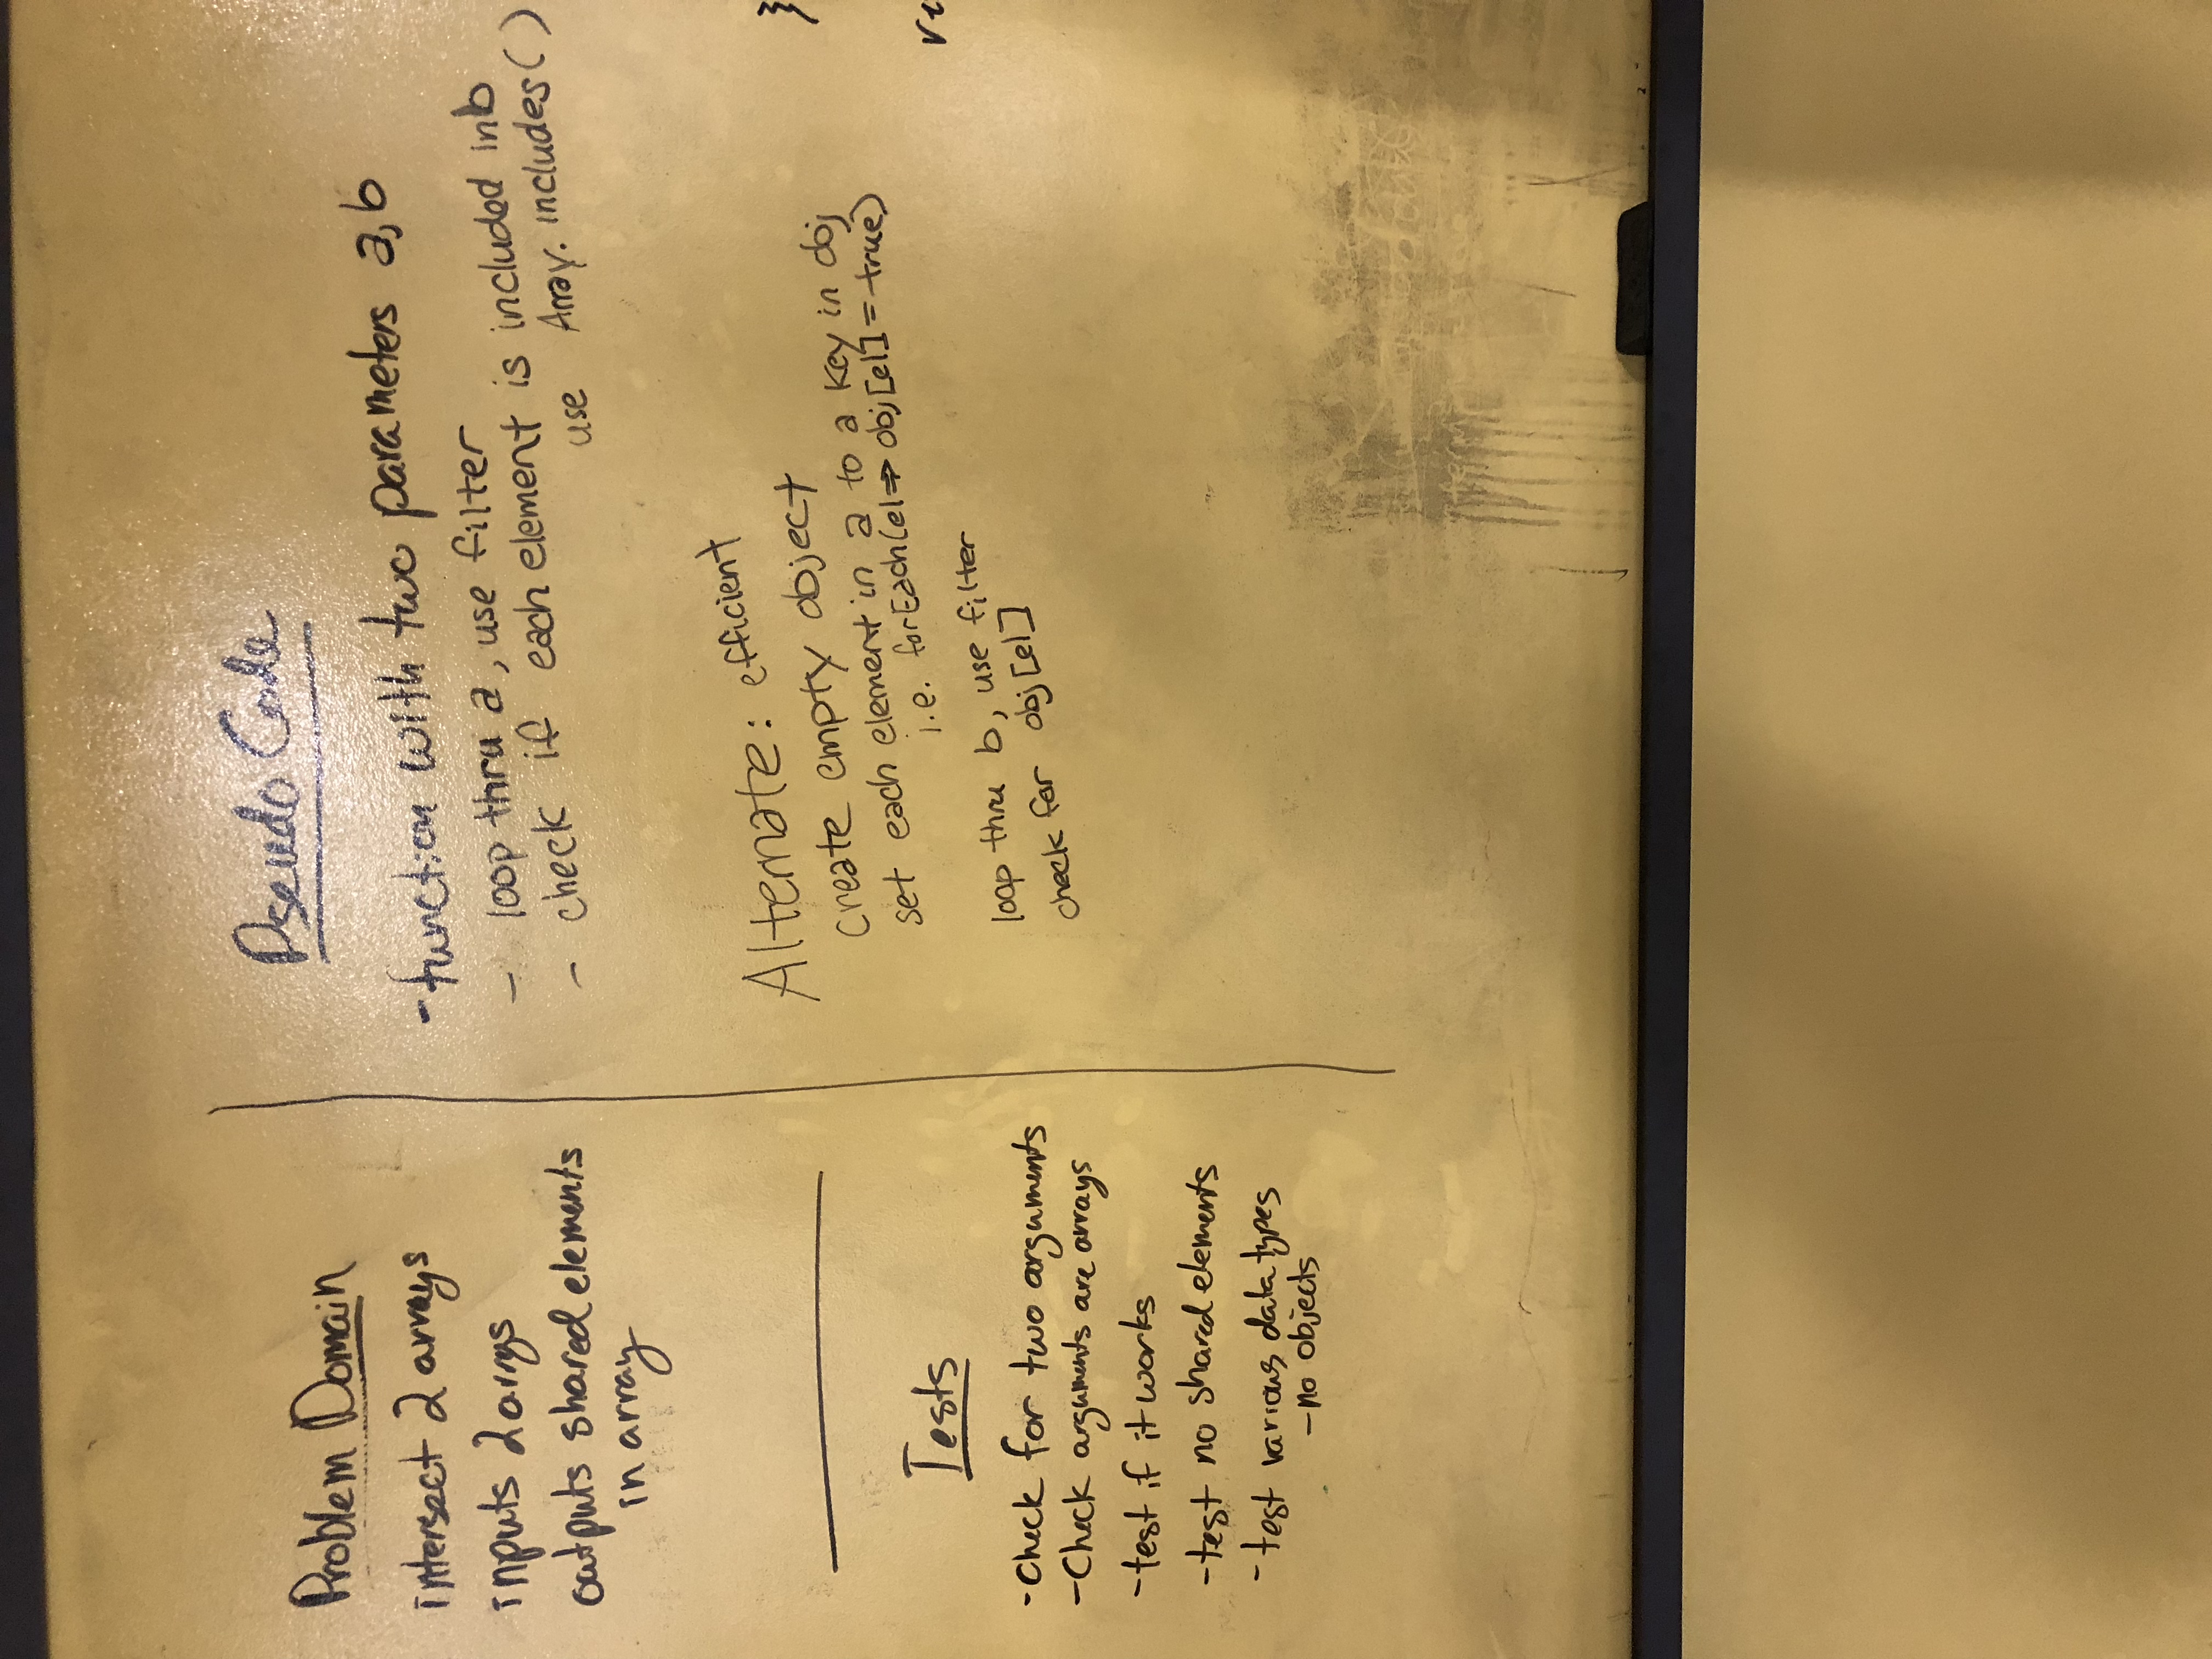 Problem Domain
intersect 2 arrays
inputs 2 arrys
outputs shared elements
in array
Tests
-Check for two arguments
-Check arguments are arrays
-test if it works
-test no shared elements
-test various data types
-no objects
Pseudo Code
-function with two parameters a,b
- loop thru a, use filter
- check if each element is included in b
use Array.includes()
Alternate: efficient
create empty object
set each element in a to a key in obj
i.e. forEach(el=> obj[el]=true)
loop thru b, use filter
check for obj[el]
}